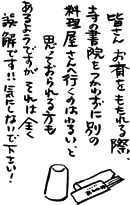 皆さんお斎をもたれる際、
寺の書院をつかわずに別の
料理屋さんへ行くのはわるい、と
思っておられる方も
あるようですが それは全く
誤解です!!気にしないで下さい!